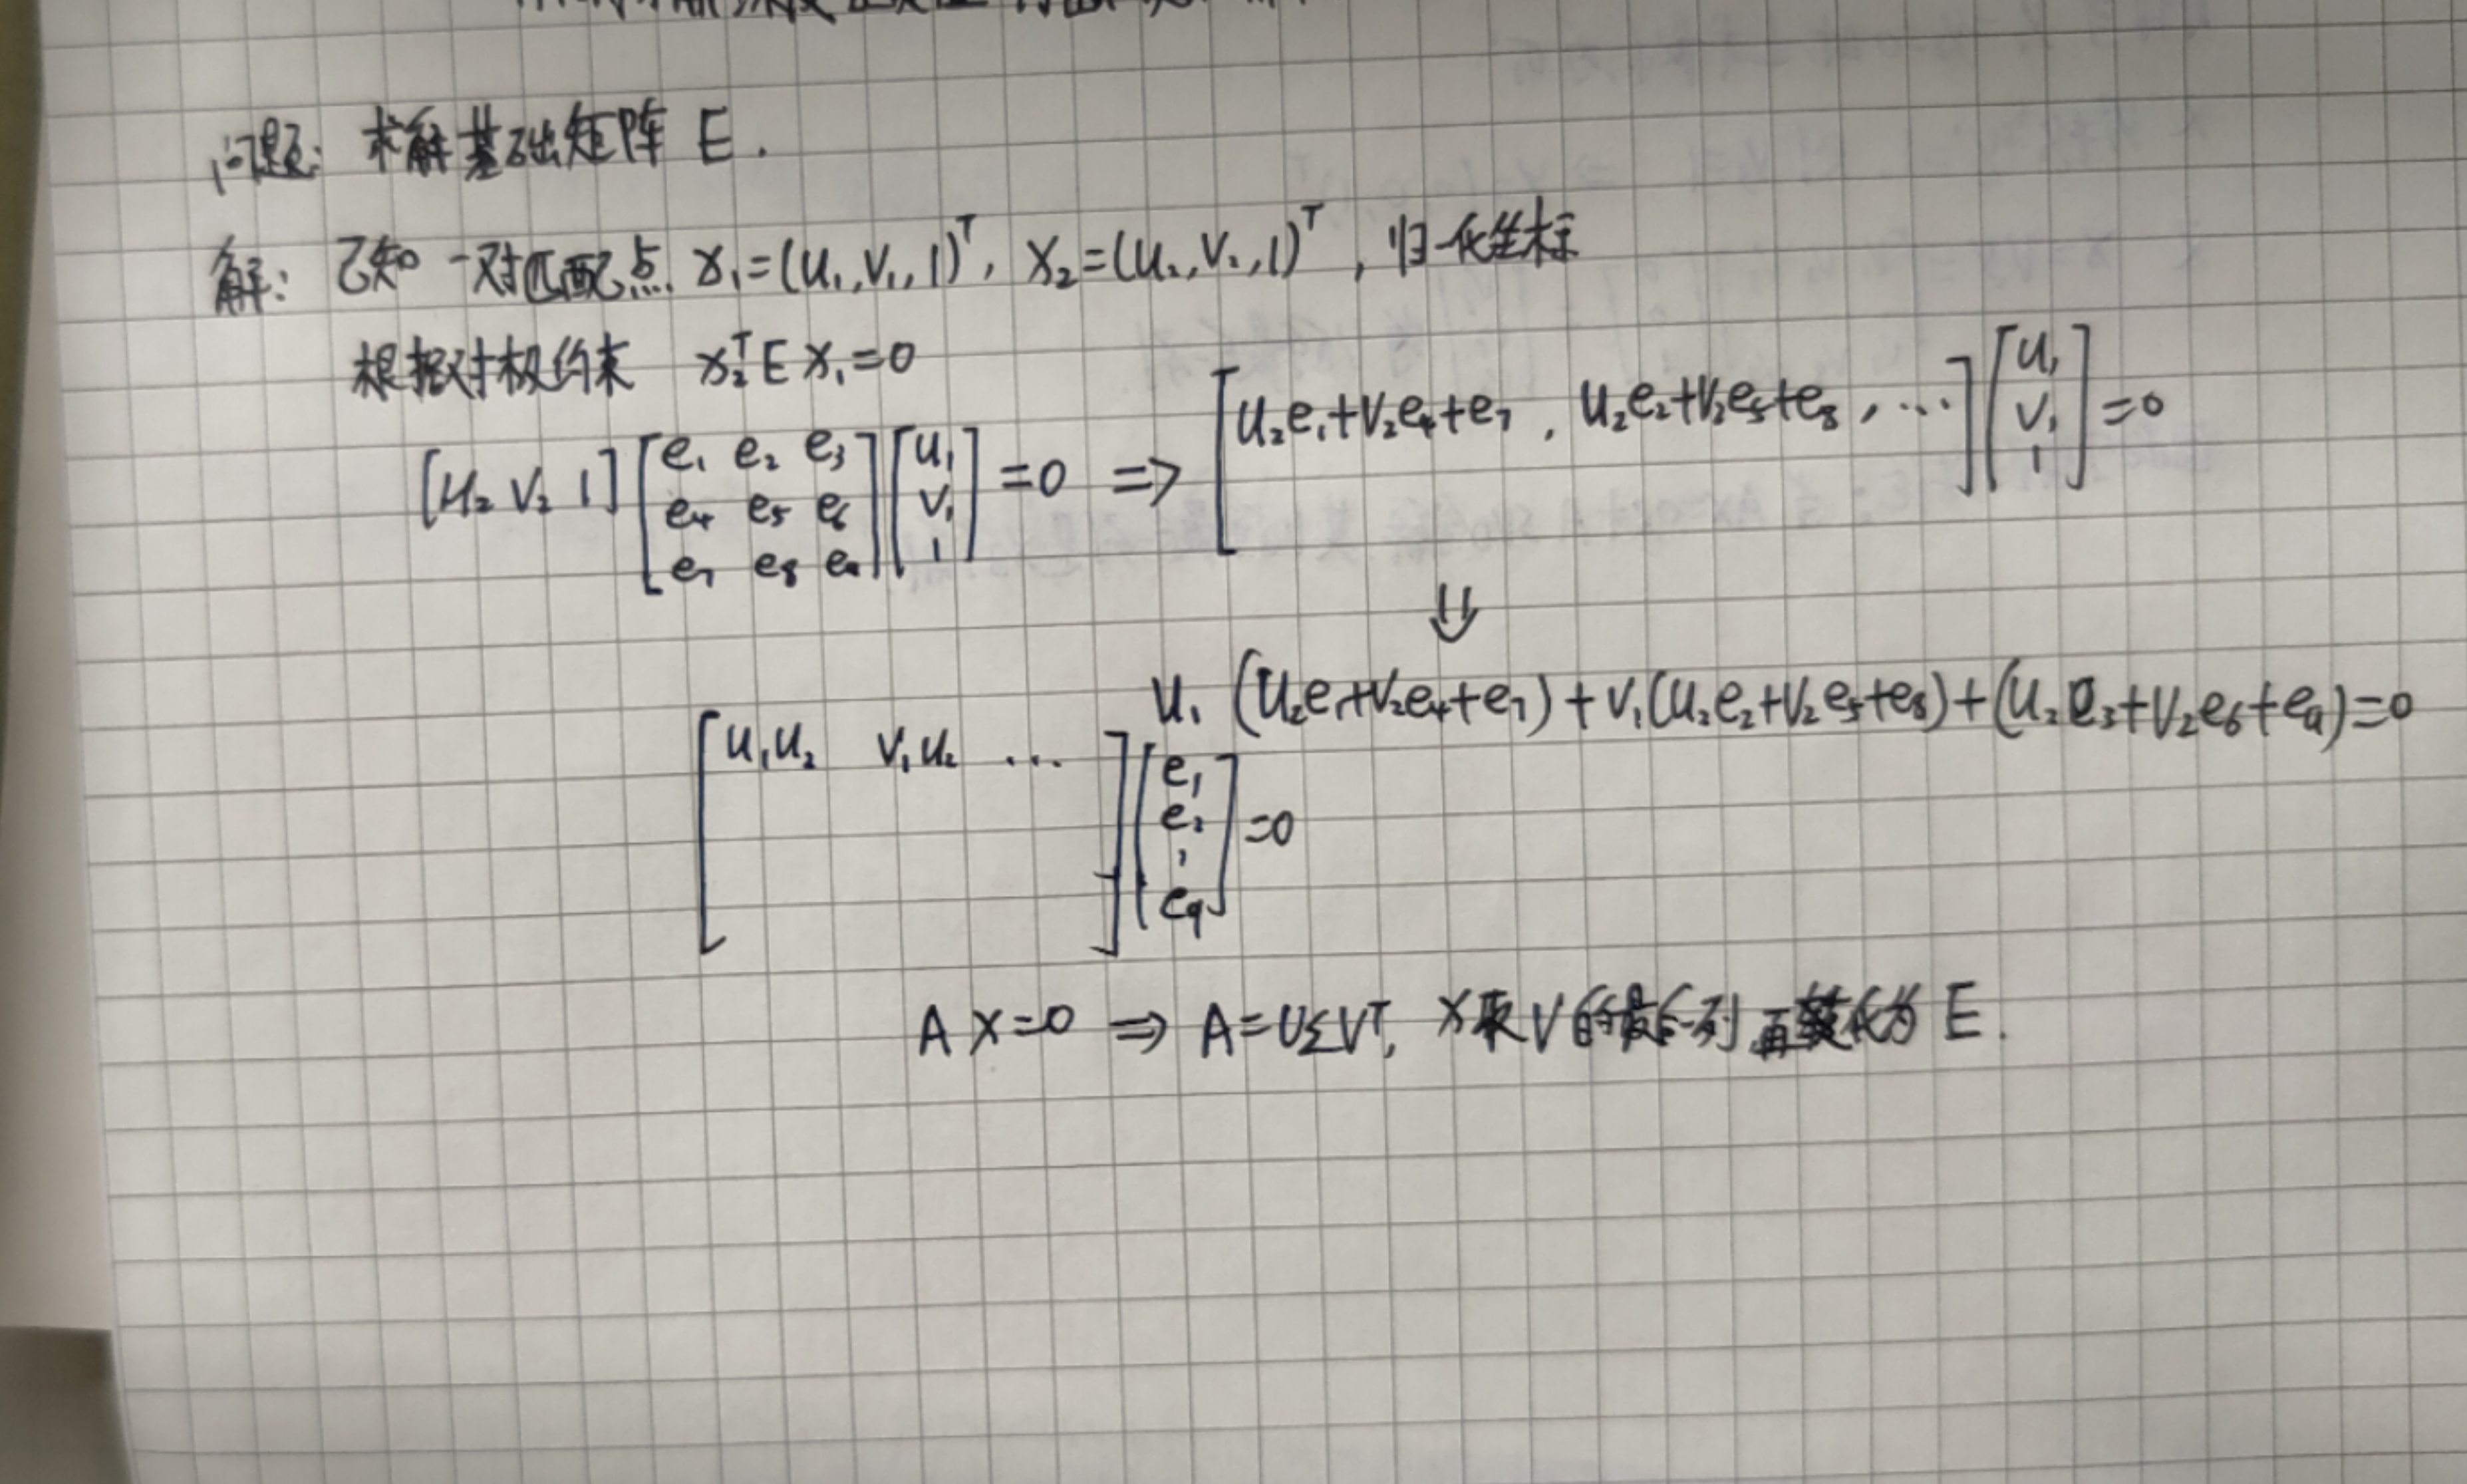 问题: 求解基础矩阵 E.
解: 已知一对匹配点 x₁=(u₁,v₁,1)ᵀ, x₂=(u₂,v₂,1)ᵀ, 归一化坐标
根据对极约束 x₂ᵀEx₁=0
[u₂ v₂ 1] [e₁ e₂ e₃; e₄ e₅ e₆; e₇ e₈ e₉] [u₁; v₁; 1] =0 => [u₂e₁+v₂e₄+e₇, u₂e₂+v₂e₅+e₈, ...] [u₁; v₁; 1] =0
⇓
u₁(u₂e₁+v₂e₄+e₇)+v₁(u₂e₂+v₂e₅+e₈)+(u₂e₃+v₂e₆+e₉)=0
[u₁u₂ v₁u₂ ...] [e₁; e₂; ⋮; e₉] =0
Ax=0 => A=UΣVᵀ, x取V的最后一列 再转化为 E.